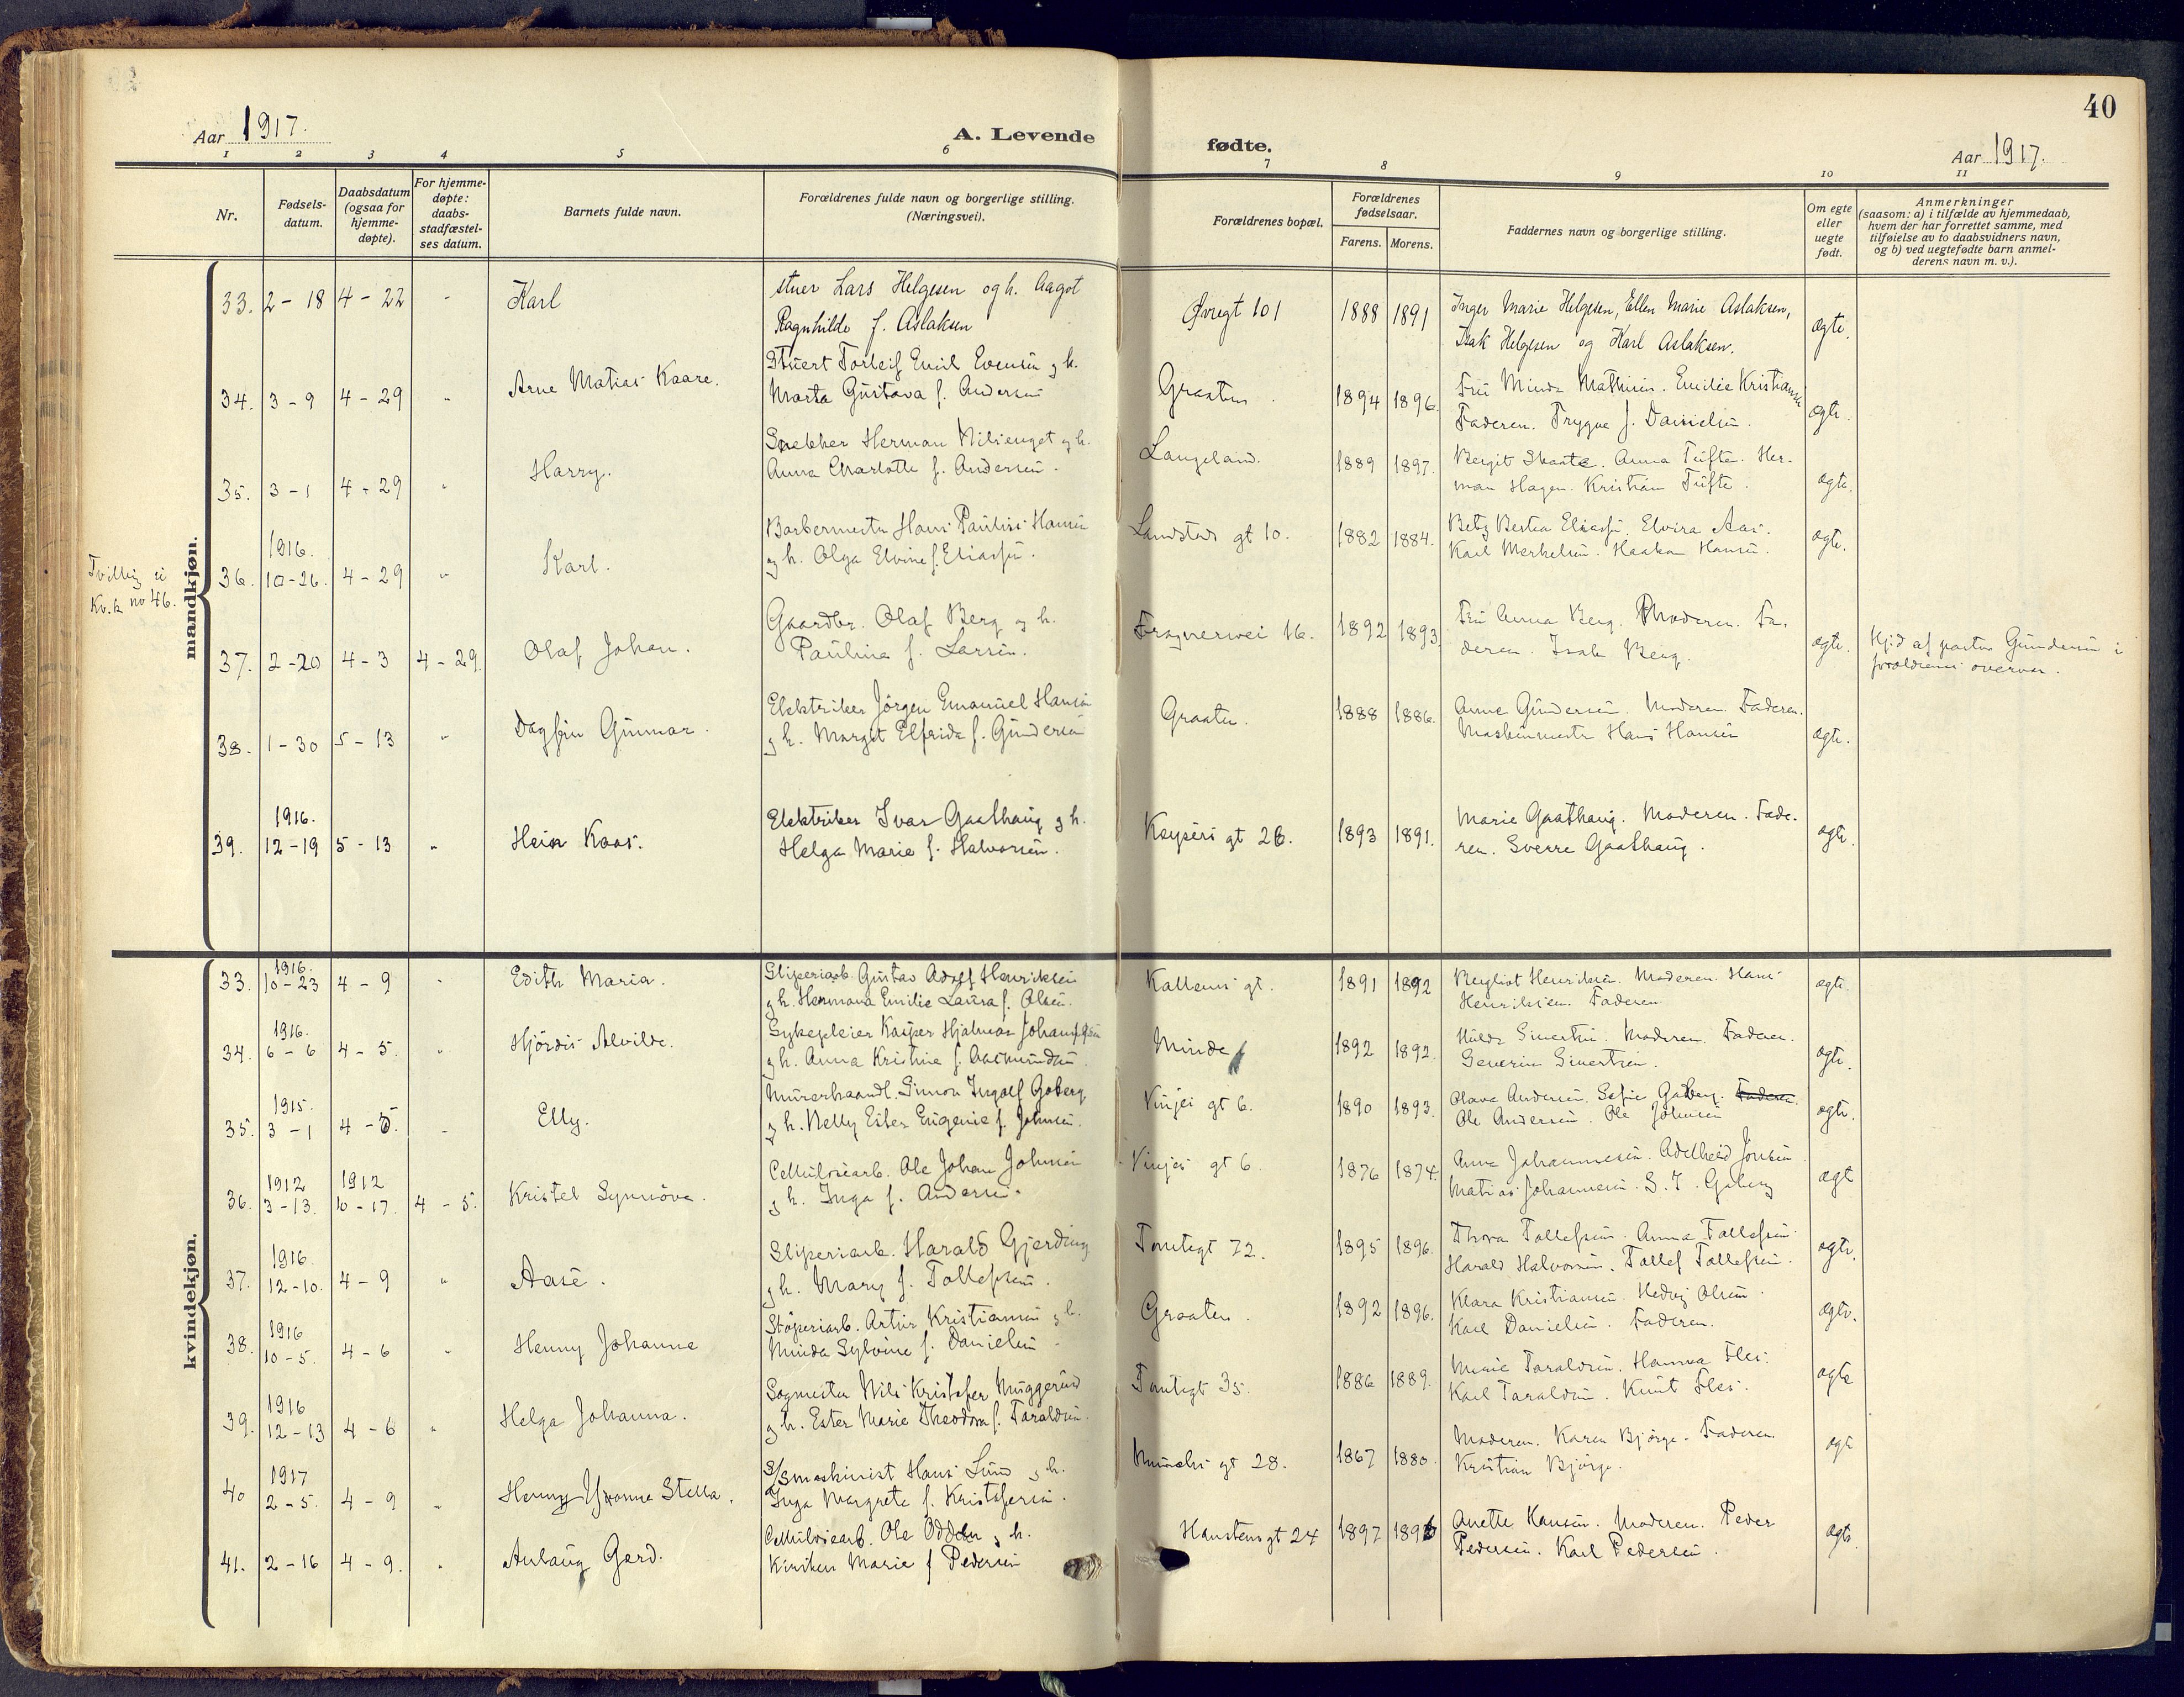 40
Aar 1917.
A. Levende fødte.
Aar 1917.
1 2 3 4 5 6 7 8 9 10 11
Nr.
Fødsels-
datum.
Daabsdatum
(ogsaa for
hjemme-
døpte).
For hjemme-
døpte:
daabs-
stadfæstel-
ses datum.
Barnets fulde navn.
Forældrenes fulde navn og borgerlige stilling.
(Næringsvei).
Forældrenes bopæl.
Forældrenes
fødselsaar.
Farens. Morens.
Faddernes navn og borgerlige stilling.
Om egte
eller
uegte
født.
Anmerkninger
(saasom: a) i tilfælde av hjemmedaab,
hvem der har forrettet samme, med
tilføielse av to daabsvidners navn,
og b) ved uegtefødte barn anmel-
derens navn m. v.).
mandkjøn.
33. 2-18 4-22 - Karl
stuer Lars Helgesen og h. Aagot
Ragnhilde f. Aslaksen
Øvregt 101 1888 1891
Inger Marie Helgesen, Ellen Marie Aslaksen,
Isak Helgesen og Karl Aslaksen.
ægte.
34. 3-9 4-29 " Arne Matias Kaare.
Stuert Torleif Emil Evensen og h.
Marta Gustava f. Andersen
Graaten. 1894 1896.
Fru Minda Mathisen. Emilie Kristiansen
Faderen. Trygve f. Danielsen.
ægte.
35. 3-1 4-29 " Harry.
Snekker Herman Nilsenget og h.
Anna Charlotte f. Andersen.
Langeland. 1889 1897.
Bergit Skaate. Anna Tufte. Her-
man Hagen. Kristian Tufte.
ægte.
Tvilling
Kv.k no 46.
36. 1916. 10-26. 4-29 " Karl.
Barbermester Hans Paulus Hansen
og h. Olga Elvine f. Eliassen.
Landstads gt 10. 1882 1884.
Betzy Bertea Eliassen, Elvira Aas.
Karl Merkelsen. Haakon Hansen.
ægte.
37. 2-20 4-3 4-29. Olaf Johan.
Gaardbr. Olaf Berg og h.
Paulina f. Larsen.
Frognervei 16. 1892 1893
Fru Anna Berg. Moderen. Fa-
deren. Isak Berg.
ægte.
Hj.d af pastor Gundersen i
forældrenes overvær.
38. 1-30 5-13 " Dagfin Gunnar.
Elektriker Jörgen Emanuel Hansen
og h. Margit Elfrida f. Gundersen
Graaten. 1888 1886.
Anne Gundersen. Moderen. Faderen.
Maskinmester Hans Hansen
ægte.
39. 1916. 12-19 5-13 " Hein Kaas.
Elektriker Ivar Gaathaug og h.
Helga Marie f. Halvorsen.
Keysers gt 26. 1893 1891.
Marie Gaathaug. Moderen. Fade-
ren. Sverre Gaathaug.
ægte.
kvindekjøn.
33. 1916. 10-23 4-9 - Edith Maria.
Sliperiarb. Gustav Adolf Henriksen
og h. Hermana Emilie Laura f. Olsen.
Kallems gt. 1891 1892
Bergliot Henriksen. Moderen. Hans
Henriksen. Faderen
ægte
34. 1916. 6-6 4-5. " Hjördis Alvilde.
Sykepleier Kasper Hjalmar Johannesen
og h. Anna Kristine f. Aasmundsen
Minde 1892 1892.
Hulda Sivertsen. Moderen. Faderen.
Severin Sivertsen.
ægte.
35. 1915. 3-1 4-5. - Elly.
Murerhaandl. Simon Ingolf Goberg
og h. Nelly Ester Eugenie f. Johnsen.
Vinjes gt 6. 1890 1893.
Olava Andersen. Sofie Goberg. Faderen.
Ole Andersen. Ole Johnsen
ægte.
36. 1912 3-13. 1912 10-17. 4-5. Kristel Synnöve.
Cellulosearb. Ole Johan Johnsen
og h. Inga f. Andersen.
Vinjes gt 6. 1876 1874.
Anna Johannesen. Adelheid Jonsen
Matias Johannesen. S. I. Goberg
ægte
37. 1916. 12-10. 4-9 " Aase.
Sliperiarb. Harald Gjerding
og h. Mary f. Tollefsen.
Tomtegt 72. 1895 1896.
Thora Tollefsen. Anna Tollefsen
Harald Halvorsen. Tollef Tollefsen.
ægte.
38. 1916 10-5. 4-6 " Henny Johanne
Stöperiarb. Artur Kristiansen og h.
Minda Sylvine f. Danielsen
Graaten. 1892 1896.
Klara Kristiansen. Hedvig Olsen.
Karl Danielsen. Faderen.
ægte.
39. 1916 12-13 4-6 " Helga Johanna.
Sagmester Nils Kristofer Muggerud
og h. Ester Marie Theodora f. Taraldsen.
Tomtegt 35. 1886 1889.
Marie Taraldsen. Hanna Fles.
Karl Taraldsen. Knut Fles.
ægte
40 1917 2-5. 4-9 " Henny Yvonne Stella.
S/S maskinist Hans Lund og h.
Inga Margrete f. Kristofersen.
Munchs gt 28. 1867 1880.
Moderen. Karen Bjørge. Faderen.
Kristian Bjørge.
ægte
41. 2-16 4-9. " Aslaug Gerd.
Cellulosearb. Ole Odden og h.
Kirsten Marie f Pedersen
Hanstensgt 24 1897 1896
Anette Hansen. Moderen. Peder
Pedersen. Karl Pedersen.
ægte.